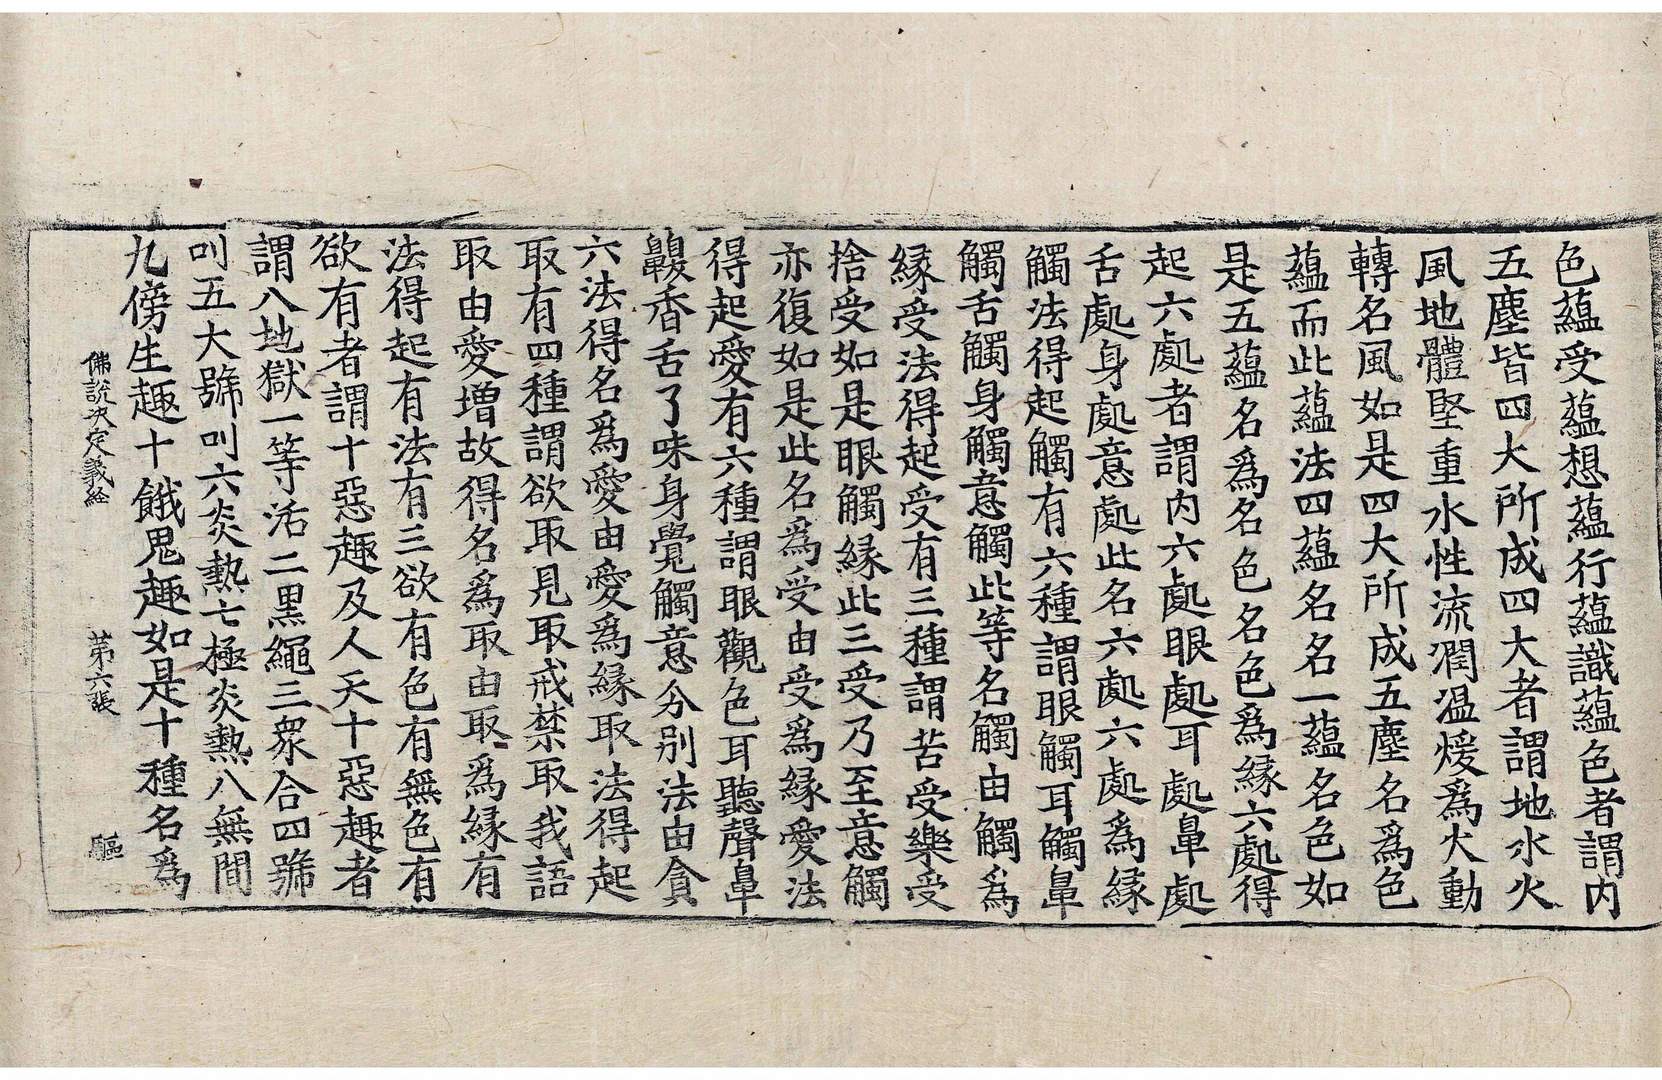 色蘊受蘊想蘊行蘊識蘊色者謂内
五塵皆四大所成四大者謂地水火
風地體堅重水性流潤温煖爲火動
轉名風如是四大所成五塵名爲色
蘊而此蘊法四蘊名名一蘊名色如
是五蘊名爲名色名色爲緣六處得
起六處者謂内六處眼處耳處鼻處
舌處身處意處此名六處六處爲緣
觸法得起觸有六種謂眼觸耳觸鼻
觸舌觸身觸意觸此等名觸由觸爲
緣受法得起受有三種謂苦受樂受
捨受如是眼觸緣此三受乃至意觸
亦復如是此名爲受由受爲緣愛法
得起愛有六種謂眼觀色耳聽聲鼻
齅香舌了味身覺觸意分别法由貪
六法得名爲愛由愛爲緣取法得起
取有四種謂欲取見取戒禁取我語
取由愛增故得名爲取由取爲緣有
法得起有法有三欲有色有無色有
欲有者謂十惡趣及人天十惡趣者
謂八地獄一等活二黑繩三衆合四號
叫五大號叫六炎熱七極炎熱八無間
九傍生趣十餓鬼趣如是十種名爲
佛說決定義經 第六張 驅